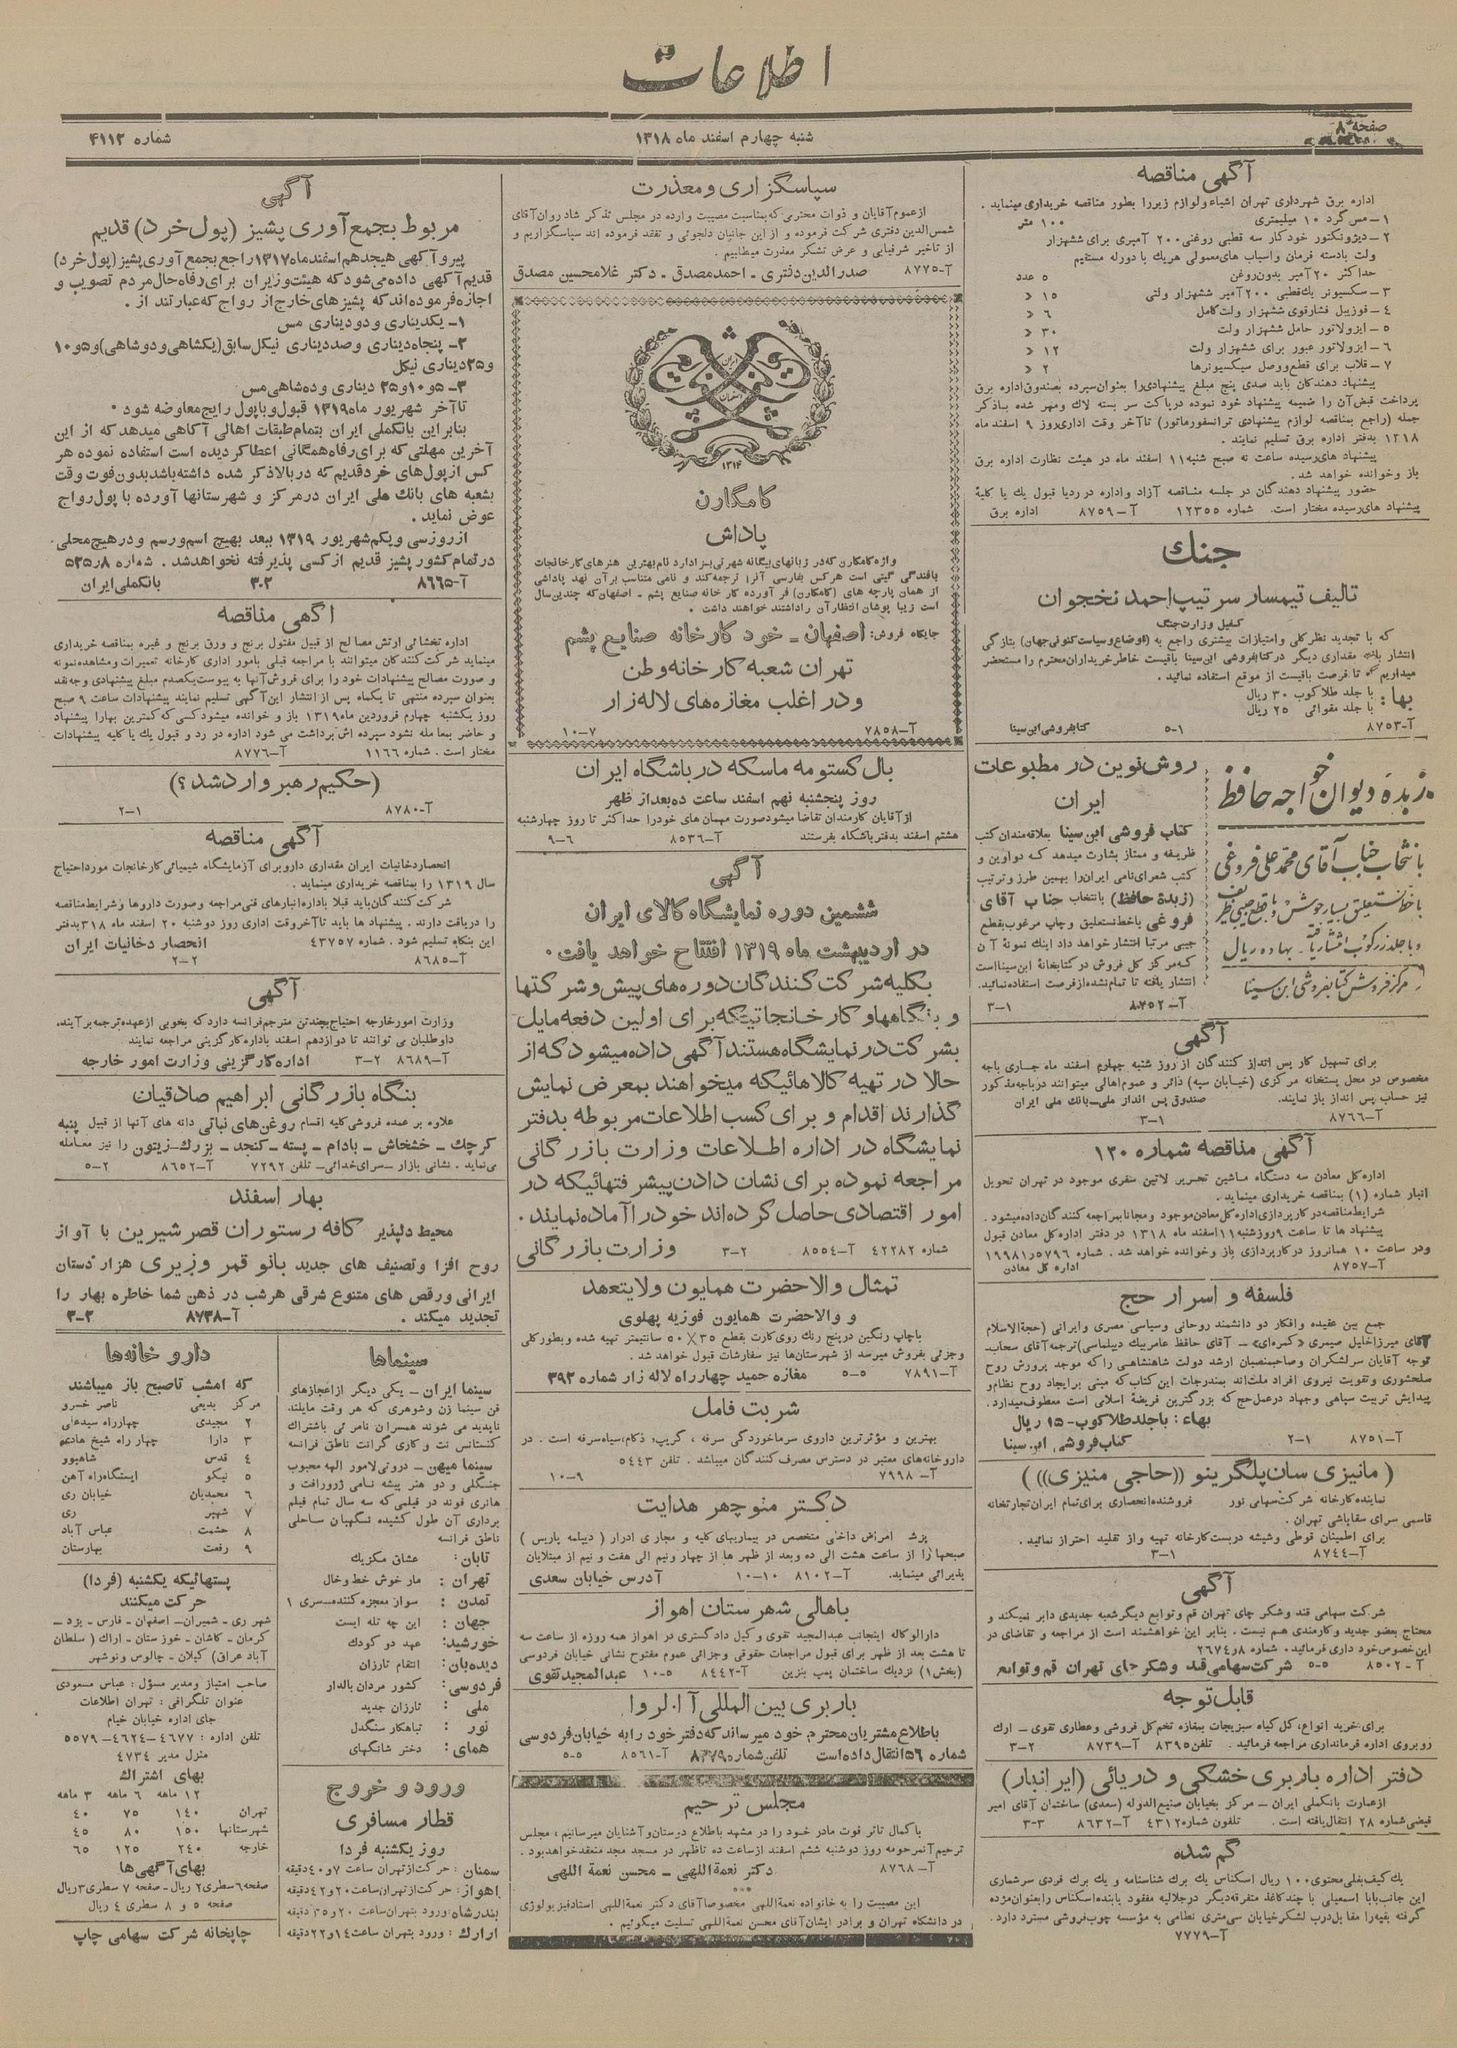 اطلاعات
صفحه ۸
شنبه چهارم اسفند ماه ۱۳۱۸
شماره ۴۱۱۲
آگهی مناقصه
اداره برق شهرداری تهران اشیاء ولوازم زیررا بطور مناقصه خریداری مینماید .
۱ــ مس گرد ۱۰ میلیمتری ۱۰۰ متر
۲ــ دیژونکتور خودکار سه قطبی روغنی ۲۰۰ آمپری برای ششهزار
ولت بادسته فرمان واسباب‌های معمولی هریك با دورله مستقیم
حداکثر ۲۰ آمپر بدون روغن ۵ عدد
۳ــ سکسیونر یك قطبی ۲۰۰ آمپر ششهزار ولتی ۱۵ »
۴ــ فوزیبل فشارقوی ششهزار ولت کامل ۶ »
۵ــ ایزولاتور حامل ششهزار ولت ۳۰ »
۶ــ ایزولاتور عبور برای ششهزار ولت ۱۲ »
۷ــ قلاب برای قطع ووصل سیکسیونرها ۲ »
پیشنهاد دهندگان باید صدی پنج مبلغ پیشنهادی را بعنوان سپرده بصندوق اداره برق
پرداخت قبض آن را ضمیمه پیشنهاد خود نموده درپاکت سر بسته لاك ومهر شده باذکر
جمله (راجع بمناقصه لوازم پیشنهادی ترانسفورماتور) تاآخر وقت اداری روز ۹ اسفند ماه
۱۳۱۸ بدفتر اداره برق تسلیم نمایند .
پیشنهاد های رسیده ساعت نه صبح شنبه ۱۱ اسفند ماه در هیئت نظارت اداره برق
باز وخوانده خواهد شد .
حضور پیشنهاد دهندگان در جلسه مناقصه آزاد واداره در ردیا قبول یك یا کلیهٔ
پیشنهاد های رسیده مختار است. شماره ۱۲۳۵۵ آ–۸۷۵۹ اداره برق
جنك
تالیف تیمسار سرتیپ احمد نخجوان
کفیل وزارت جنگ
که با تجدید نظر کلی وامتیازات بیشتری راجع به (اوضاع وسیاست کنونی جهان) بتازگی
انتشار یافته مقداری دیگر درکتابفروشی ابن سینا باقیست خاطر خریداران محترم را مستحضر
میداریم که تا فرصت باقیست از موقع استفاده نمائید .
بها : با جلد طلاکوب ۳۰ ریال
با جلد مقوائی ۲۵ ریال
آ–۸۷۵۳ ۱–۵ کتابفروشی ابن سینا
زبده دیوان خواجه حافظ
با نتخاب جناب آقای محمد علی فروغی
با خط نستعلیق بسیار خوش وبا قطع جیبی ظریف
و با جلد زرکوب انتشار یافته . بها ده ریال
مرکز فروش کتابفروشی ابن سینا
روش نوین در مطبوعات
ایران
کتاب فروشی ابن سینا بعلاقه مندان کتب
ظریفه و ممتاز بشارت میدهد که دواوین و
کتب شعرای نامی ایران را بهمین طرز و ترتیب
(زبدهٔ حافظ) بانتخاب جناب آقای
فروغی باخط نستعلیق و چاپ مرغوب بقطع
جیبی مرتبا انتشار خواهد داد اینك نمونهٔ آن
که مرکز کل فروش در کتابخانهٔ ابن سینا است
انتشار یافته تا تمام نشده از فرصت استفاده نمائید.
آ–۸۷۵۲ ۱–۳
آگهی
برای تسهیل کار پس انداز کنندگان از روز شنبه چهارم اسفند ماه جاری باجه
مخصوص در محل پستخانه مرکزی (خیابان سپه) دائر و عموم اهالی میتوانند درباجه مذکور
نیز حساب پس انداز باز نمایند. صندوق پس انداز ملی–بانك ملی ایران
آ–۸۷۶۶ ۱–۳
آگهی مناقصه شماره ۱۳۰
اداره کل معادن سه دستگاه ماشین تحریر لاتین سفری موجود در تهران تحویل
انبار شماره (۱) بمناقصه خریداری مینماید .
شرایط مناقصه در کارپردازی اداره کل معادن موجود و مجانا بمراجعه کنندگان داده میشود .
پیشنهاد ها تا ساعت ۹ روزشنبه ۱۱ اسفند ماه ۱۳۱۸ در دفتر اداره کل معادن قبول
ودر ساعت ۱۰ همانروز درکارپردازی باز وخوانده خواهد شد . شماره ۱۹۹۸۱ر۵۷۹۶
آ–۸۷۵۷ اداره کل معادن
فلسفه و اسرار حج
جمع بین عقیده وافکار دو دانشمند روحانی وسیاسی مصری وایرانی (حجةالاسلام
آقای میرزاخلیل صیمری «کمره‌ای» – آقای حافظ عامربیك دیپلماسی) ترجمه آقای سحاب–
توجه آقایان سرلشگران وصاحبمنصبان ارشد دولت شاهنشاهی راکه موجد پرورش روح
سلحشوری وتقویت نیروی افراد ملت‌اند بمندرجات این کتاب که مبنی برایجاد روح نظام و
پیدایش تربیت سپاهی وجهاد درعمل حج که بزرگترین فریضهٔ اسلامی است معطوف میدارد .
بهاء : با جلد طلاکوب ۱۵ ریال
آ–۸۷۵۱ ۱–۲ کتاب فروشی ابن سینا
( مانیزی سان پلگرینو ((حاجی منیزی)) )
نماینده کارخانه شرکت سهامی نور فروشنده انحصاری برای تمام ایران تجارتخانه
قاسمی سرای سقاباشی تهران .
برای اطمینان قوطی وشیشه دربست کارخانه تهیه واز تقلید احتراز نمائید .
آ–۸۷۴۴ ۱–۳
آگهی
شرکت سهامی قند وشکر چای تهران قم وتوابع دیگر شعبه جدیدی دایر نمیکند و
محتاج بعضو جدید وکارمندی هم نیست . بنابر این خواهشمند است از مراجعه و تقاضای در
این خصوص خود داری فرمائید. شماره ۸ر۲۶۷۴
آ–۸۵۰۲ ۵–۵ شرکت سهامی قند وشکر چای تهران قم وتوابع
قابل توجه
برای خرید انواع، گل گیاه سبزیجات بمغازه تخم گل فروشی وعطاری تقوی – ارك
روبروی اداره فرمانداری مراجعه فرمائید . تلفن ۸۳۹۵ آ–۸۷۳۹ ۲–۳
دفتر اداره باربری خشکی و دریائی (ایرانبار)
ازعمارت بانکملی ایران – مرکز بخیابان صنیع‌الدوله (سعدی) ساختمان آقای امیر
فیضی شماره ۲۸ انتقال یافته است . تلفون شماره ۴۳۱۲ آ–۸۶۳۲ ۳–۳
گم شده
یك کیف بغلی محتوی ۱۰۰ ریال اسکناس یك برك شناسنامه و یك برك فردی سرشماری
این جانب بابا اسمعیلی با چند کاغذ متفرقه دیگر درجلالیه مفقود یابنده اسکناس رابعنوان مژده
گرفته بقیه را مقابل درب لشکر خیابان سی متری نظامی به مؤسسه چوب فروشی مسترد دارد .
آ–۷۷۷۹
سپاسگزاری و معذرت
ازعموم آقایان و ذوات محترمی که بمناسبت مصیبت وارده در مجلس تذکر شادروان آقای
شمس‌الدین دفتری شرکت فرموده و از این جانبان دلجوئی و تفقد فرموده اند سپاسگزاریم و
از تاخیر شرفیابی و عرض تشکر معذرت میطلبیم .
آ–۸۷۷۵ صدرالدین دفتری – احمد مصدق – دکتر غلامحسین مصدق
ایران
اصفهان
۱۳۱۴
کامگارن
پاداش
واژه کامکارن که در زبانهای بیگانه شهرتی بسزا دارد نام بهترین هنرهای کارخانجات
بافندگی گیتی است هرکس بفارسی آنرا ترجمه کند و نامی متناسب برآن نهد پاداشی
از همان پارچه های (کامکارن) فر آورده کار خانه صنایع پشم – اصفهان که چندین سال
است زیبا پوشان انتظار آن را داشتند خواهند داشت .
جایگاه فروش: اصفهان – خود کارخانه صنایع پشم
تهران شعبه کارخانه وطن
ودر اغلب مغازه‌های لاله‌زار
آ–۷۸۵۸ ۷–۱۰
بال کستومه ماسکه درباشگاه ایران
روز پنجشنبه نهم اسفند ساعت ده بعد از ظهر
ازآقایان کارمندان تقاضا میشود صورت مهمان های خودرا حداکثر تا روز چهارشنبه
هشتم اسفند بدفتر باشگاه بفرستند آ–۸۵۳۶ ۶–۹
آگهی
ششمین دوره نمایشگاه کالای ایران
در اردیبهشت ماه ۱۳۱۹ افتتاح خواهد یافت .
بکلیه شرکت کنندگان دوره‌های پیش و شرکتها
و بنگاهها و کارخانجاتیکه برای اولین دفعه مایل
بشرکت در نمایشگاه هستند آگهی داده میشود که از
حالا در تهیه کالاهائیکه میخواهند بمعرض نمایش
گذارند اقدام و برای کسب اطلاعات مربوطه بدفتر
نمایشگاه در اداره اطلاعات وزارت بازرگانی
مراجعه نموده برای نشان دادن پیشرفتهائیکه در
امور اقتصادی حاصل کرده‌اند خود را آماده نمایند .
شماره ۴۲۲۸۲ آ–۸۵۵۴ ۲–۳ وزارت بازرگانی
تمثال والاحضرت همایون ولایتعهد
و والاحضرت همایون فوزیه پهلوی
باچاپ رنگین در پنج رنك روی کارت بقطع ۳۵×۵۰ سانتیمتر تهیه شده وبطور کلی
وجزئی بفروش میرسد از شهرستان‌ها نیز سفارشات قبول خواهد شد .
آ–۷۸۹۱ ۵–۵ مغازه حمید چهارراه لاله زار شماره ۳۹۲
شربت فامل
بهترین و مؤثرترین داروی سرماخوردگی سرفه ، گریپ، ذکام، سیاه سرفه است . در
داروخانه‌های معتبر در دسترس مصرف کنندگان میباشد . تلفن ۵۴۴۳
آ–۷۹۹۸ ۹–۱۰
دکتر منوچهر هدایت
پزشك امراض داخلی متخصص در بیماریهای کلیه و مجاری ادرار ( دیپلمه پاریس )
صبحها را از ساعت هشت الی ده وبعد از ظهر ها از چهار ونیم الی هفت و نیم از مبتلایان
پذیرائی مینماید. آ–۸۱۰۲ ۱۰–۱۰ آدرس خیابان سعدی
باهالی شهرستان اهواز
دارالوکاله اینجانب عبدالمجید تقوی وکیل دادگستری در اهواز همه روزه از ساعت سه
تا هشت بعد از ظهر برای قبول مراجعات حقوقی وجزائی عموم مفتوح نشانی خیابان فردوسی
(بخش ۱) نزدیك ساختمان پمپ بنزین آ–۸۴۴۲ ۵–۱۰ عبدالمجید تقوی
باربری بین المللی آ.ا.لروا
باطلاع مشتریان محترم خود میرساند که دفتر خود را به خیابان فردوسی
شماره ۱۵۶ انتقال داده است تلفن شماره ۸۷۷۹ آ–۸۵۶۱ ۵–۵
مجلس ترحیم
با کمال تاثر فوت مادر خود را در مشهد باطلاع دوستان و آشنایان میرسانیم ، مجلس
ترحیم آنمرحومه روز دوشنبه ششم اسفند ازساعت ده تاظهر در مسجد مجد منعقد خواهد بود .
آ–۸۷۶۸ دکتر نعمة‌اللهی – محسن نعمة اللهی
این مصیبت را به خانواده نعمة‌اللهی مخصوصا آقای دکتر نعمة‌اللهی استاد فیزیولوژی
در دانشگاه تهران و برادر ایشان آقای محسن نعمة‌اللهی تسلیت میگوئیم .
آگهی
مربوط بجمع آوری پشیز (پول خرد) قدیم
پیرو آگهی هیجدهم اسفند ماه ۱۳۱۷ راجع بجمع آوری پشیز (پول خرد)
قدیم آگهی داده می‌شود که هیئت وزیران برای رفاه حال مردم تصویب و
اجازه فرموده‌اند که پشیز های خارج از رواج که عبارتند از .
۱– یکدیناری و دو دیناری مس
۲– پنجاه دیناری وصد دیناری نیکل سابق (یکشاهی و دوشاهی) و ۵ و ۱۰
و ۲۵ دیناری نیکل
۳– ۵ و ۱۰ و ۲۵ دیناری و ده شاهی مس
تا آخر شهریور ماه ۱۳۱۹ قبول و با پول رایج معاوضه شود .
بنابراین بانکملی ایران بتمام طبقات اهالی آگاهی میدهد که از این
آخرین مهلتی که برای رفاه همگانی اعطا گردیده است استفاده نموده هر
کس از پول‌های خرد قدیم که دربالا ذکر شده داشته باشد بدون فوت وقت
بشعبه های بانك ملی ایران درمرکز و شهرستانها آورده با پول رواج
عوض نماید .
ازروزسی ویکم شهریور ۱۳۱۹ ببعد بهیچ اسم ورسم و در هیچ محلی
درتمام کشور پشیز قدیم از کسی پذیرفته نخواهد شد . شماره ۸ر۵۲۵
آ–۸۶۶۵ ۲–۳ بانکملی ایران
آگهی مناقصه
اداره تخشائی ارتش مصالح از قبیل مفتول برنج و ورق برنج و غیره بمناقصه خریداری
مینماید شرکت کنندگان میتوانند با مراجعه قبلی بامور اداری کارخانه تعمیرات ومشاهده نمونه
و صورت مصالح پیشنهادات خود را برای فروش آنها به پیوست یکصدم مبلغ پیشنهادی وجه نقد
بعنوان سپرده منتهی تا یکماه پس از انتشار این آگهی تسلیم نمایند پیشنهادات ساعت ۹ صبح
روز یکشنبه چهارم فروردین ماه ۱۳۱۹ باز و خوانده میشود کسی که کمترین بهارا پیشنهاد
و حاضر بمعامله نشود سپرده اش برداشت می شود اداره در رد و قبول یك یا کلیه پیشنهادات
مختار است . شماره ۱۱۶۶ آ–۸۷۷۶
(حکیم رهبر وارد شد ؟)
آ–۸۷۸۰ ۱–۲
آگهی مناقصه
انحصار دخانیات ایران مقداری دارو برای آزمایشگاه شیمیائی کارخانجات مورد احتیاج
سال ۱۳۱۹ را بمناقصه خریداری مینماید .
شرکت کنندگان باید قبلا باداره انبارهای فنی مراجعه وصورت داروها وشرایط مناقصه
را دریافت دارند . پیشنهاد ها باید تا آخروقت اداری روز دوشنبه ۲۰ اسفند ماه ۳۱۸ بدفتر
این بنگاه تسلیم شود . شماره ۴۳۷۵۷ انحصار دخانیات ایران
آ–۸۶۸۵ ۲–۲
آگهی
وزارت امور خارجه احتیاج بچند تن مترجم فرانسه دارد که بخوبی ازعهده ترجمه برآیند.
داوطلبان می توانند تا دوازدهم اسفند باداره کارگزینی مراجعه نمایند
آ–۸۶۸۹ ۲–۳ اداره کارگزینی وزارت امور خارجه
بنگاه بازرگانی ابراهیم صادقیان
علاوه بر عمده فروشی کلیه اقسام روغن‌های نباتی دانه های آنها از قبیل پنبه
کرچك– خشخاش – بادام – پسته – کنجد – بزرك – زیتون را نیز معامله
می‌نماید . نشانی بازار – سرای خدائی – تلفن ۷۲۹۲ آ–۸۶۵۲ ۲–۵
بهار اسفند
محیط دلپذیر کافه رستوران قصر شیرین با آواز
روح افزا وتصنیف های جدید بانو قمر وزیری هزار دستان
ایرانی ورقص های متنوع شرقی هرشب در ذهن شما خاطره بهار را
تجدید میکند . آ–۸۷۳۸ ۲–۳
سینماها
سینما ایران – یکی دیگر از اعجازهای
فن سینما زن وشوهری که هر وقت مایلند
ناپدید می شوند همسران نامرئی باشتراك
کنستانس نت و کاری گرانت ناطق فرانسه
سینما میهن – دروتی لامور الهه محبوب
جنگلی و دو هنر پیشه نامی ژرورافت و
هانری فوند در فیلمی که سه سال تمام فیلم
برداری آن طول کشیده نگهبان ساحلی
ناطق فرانسه
تابان : عشاق مکزیك
تهران : مار خوش خط وخال
تمدن : سوار معجزه کننده–سری ۱
جهان : این چه تله ایست
خورشید : عهد دو کودك
دیده‌بان : انتقام تارزان
فردوسی : کشور مردان بالدار
ملی : تارزان جدید
نور : تباهکار سنگدل
همای : دختر شانگهای
ورود و خروج
قطار مسافری
روز یکشنبه فردا
سمنان : حرکت از تهران ساعت ۷ و ۴۰ دقیقه
اهواز : حرکت از تهران ساعت ۲۰ و ۴۲ دقیقه
بندرشاه : ورود بتهران ساعت ۲۰ و ۳۵ دقیقه
اراك : ورود بتهران ساعت ۱۴ و ۲۲ دقیقه
دارو خانه‌ها
که امشب تا صبح باز میباشند
مرکز بدیعی ناصر خسرو
۲ مجیدی چهارراه سیدعلی
۳ دارا چهار راه شیخ هادی
۴ قدس شاهپور
۵ نیکو ایستگاه راه آهن
۶ محمدیان خیابان ری
۷ شهپر ری
۸ حشمت عباس آباد
۹ رفعت بهارستان
پستهائیکه یکشنبه (فردا)
حرکت میکنند
شهر ری – شمیران – اصفهان – فارس – یزد –
کرمان – کاشان – خوزستان – اراك ( سلطان
آباد عراق) گیلان – چالوس و نوشهر
صاحب امتیاز ومدیر مسؤل : عباس مسعودی
عنوان تلگرافی : تهران اطلاعات
جای اداره خیابان خیام
تلفن اداره : ۴۶۷۷–۴۶۲۴–۵۵۷۹
منزل مدیر ۴۷۳۴
بهای اشتراك
۱۲ ماهه ۶ ماهه ۳ ماهه
تهران ۱۴۰ ۷۵ ۴۰
شهرستانها ۱۵۰ ۸۰ ۴۵
خارجه ۲۴۰ ۱۲۵ ۶۵
بهای آگهی‌ها
صفحه ۶ سطری ۲ ریال – صفحه ۷ سطری ۳ ریال
صفحه ۵ و ۸ سطری ۴ ریال
چاپخانه شرکت سهامی چاپ